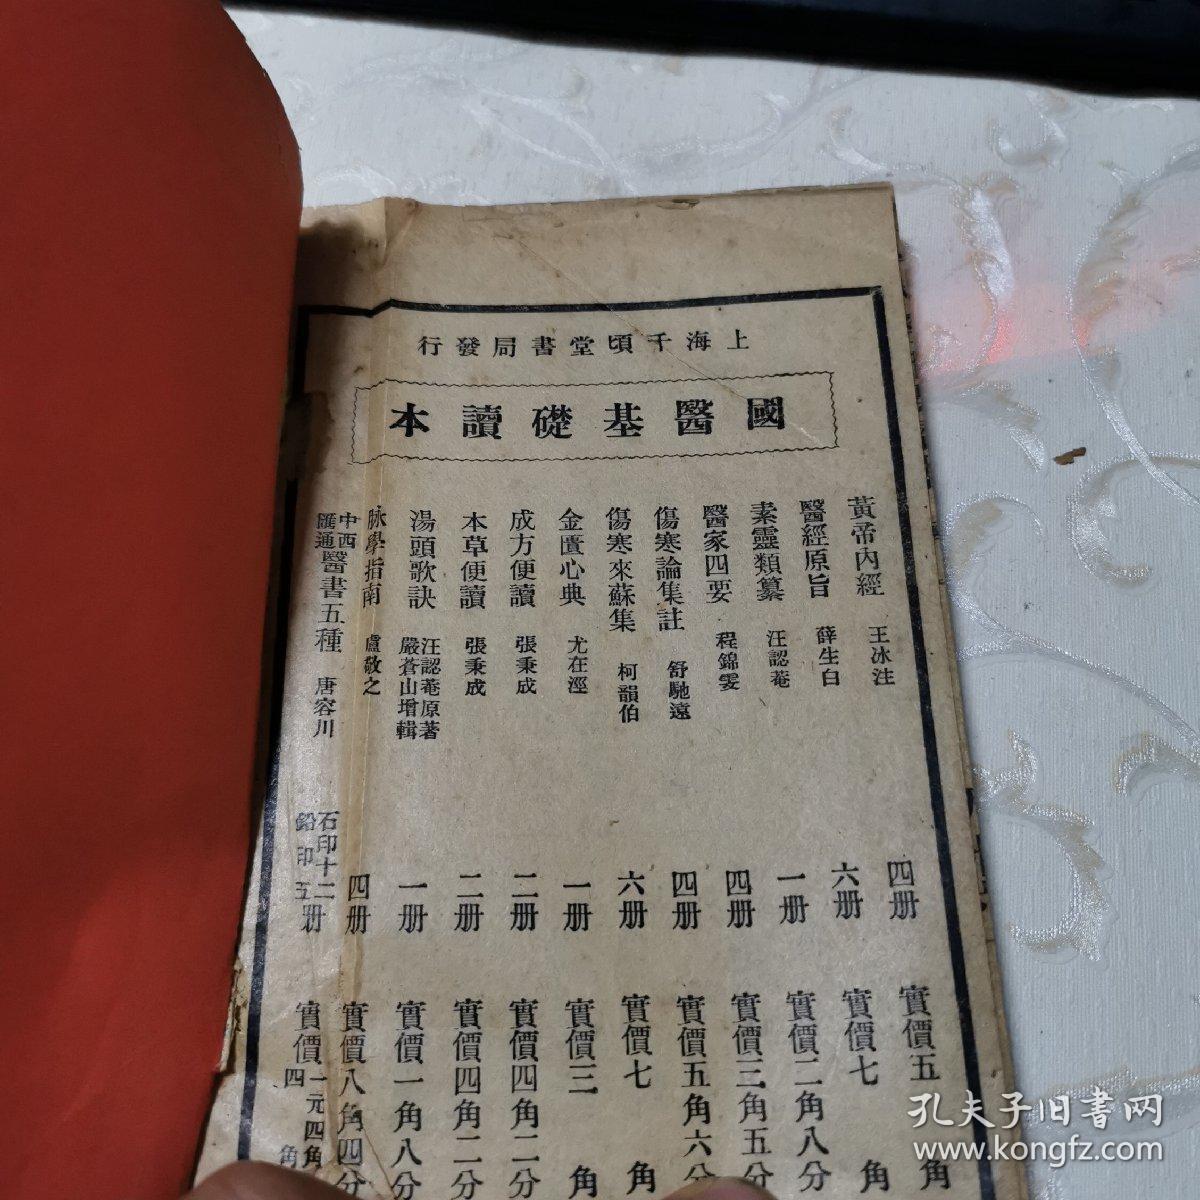 上海千頃堂書局發行
國醫基礎讀本
黃帝內經 王冰注 四册 實價五角
醫經原旨 薛生白 六册 實價七角
素靈類纂 汪認菴 一册 實價二角八分
醫家四要 程錦雯 四册 實價三角五分
傷寒論集註 舒馳遠 四册 實價五角六分
傷寒來蘇集 柯韻伯 六册 實價七角
金匱心典 尤在涇 一册 實價三角
成方便讀 張秉成 二册 實價四角二分
本草便讀 張秉成 二册 實價四角二分
湯頭歌訣 汪認菴原著 嚴蒼山增輯 一册 實價一角八分
脉學指南 盧敬之 四册 實價八角四分
中西匯通醫書五種 唐容川 石印十二 鉛印五册 實價一元四角 四角
孔夫子旧书网
www.kongfz.com